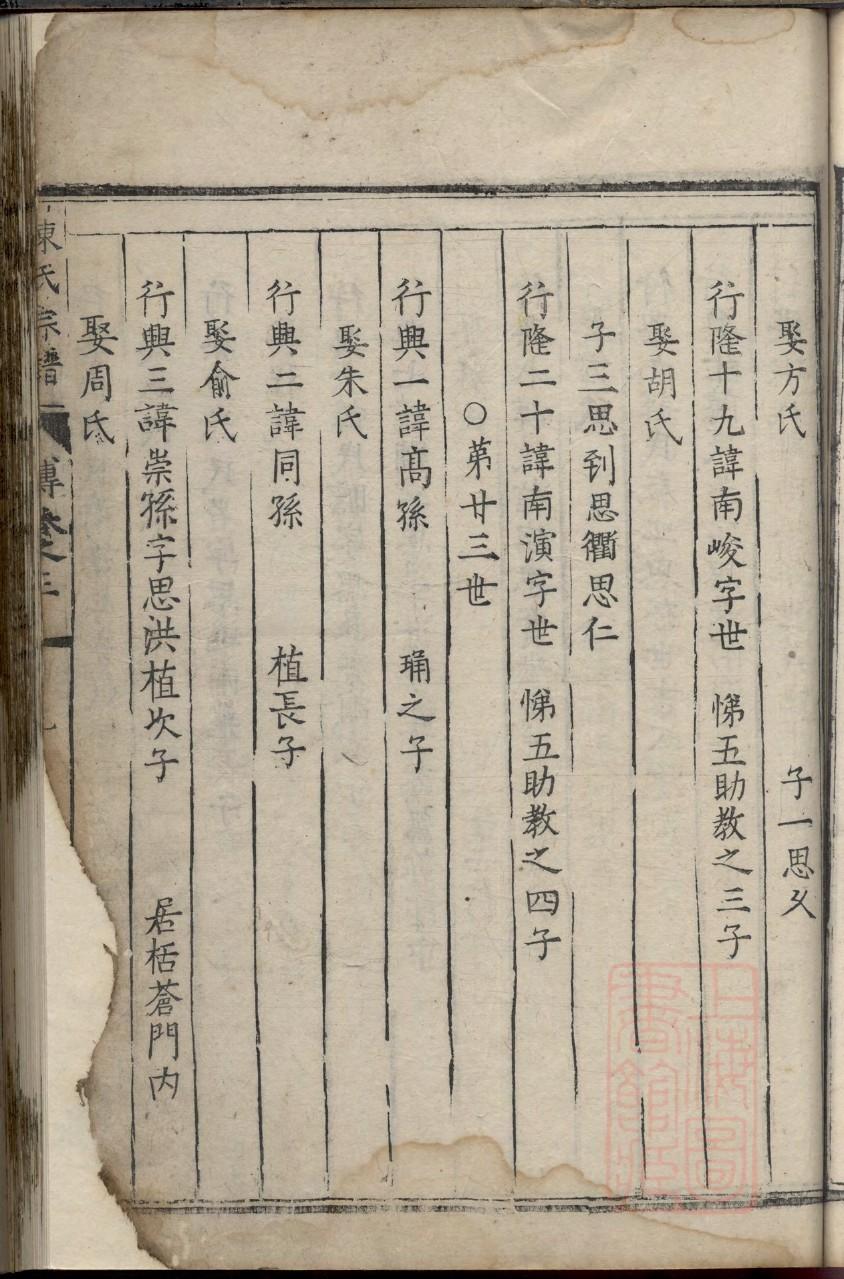 娶方氏 子一思义
行隆十九諱南峻字世 悌五助教之三子
娶胡氏
子三思到思衢思仁
行隆二十諱南演字世 悌五助教之四子
○第廿三世
行興一諱高孫 琦之子
娶朱氏
行興二諱同孫 植長子
娶俞氏
行興三諱崇孫字思洪植次子 居栝蒼門内
娶周氏
陳氏宗譜 傳卷之三
上海圖書館藏